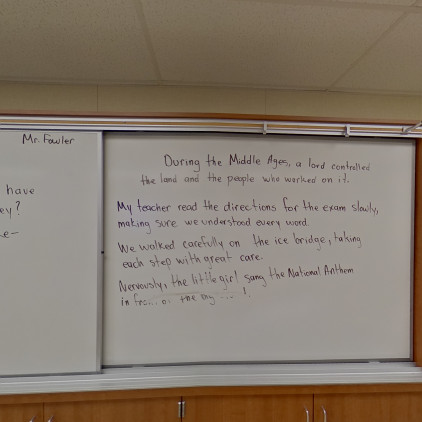 Mr. Fowler
have
ey?
e-
During the Middle Ages, a lord controlled
the land and the people who worked on it.
My teacher read the directions for the exam slowly,
making sure we understood every word.
We walked carefully on the ice bridge, taking
each step with great care.
Nervously, the little girl sang the National Anthem
in the